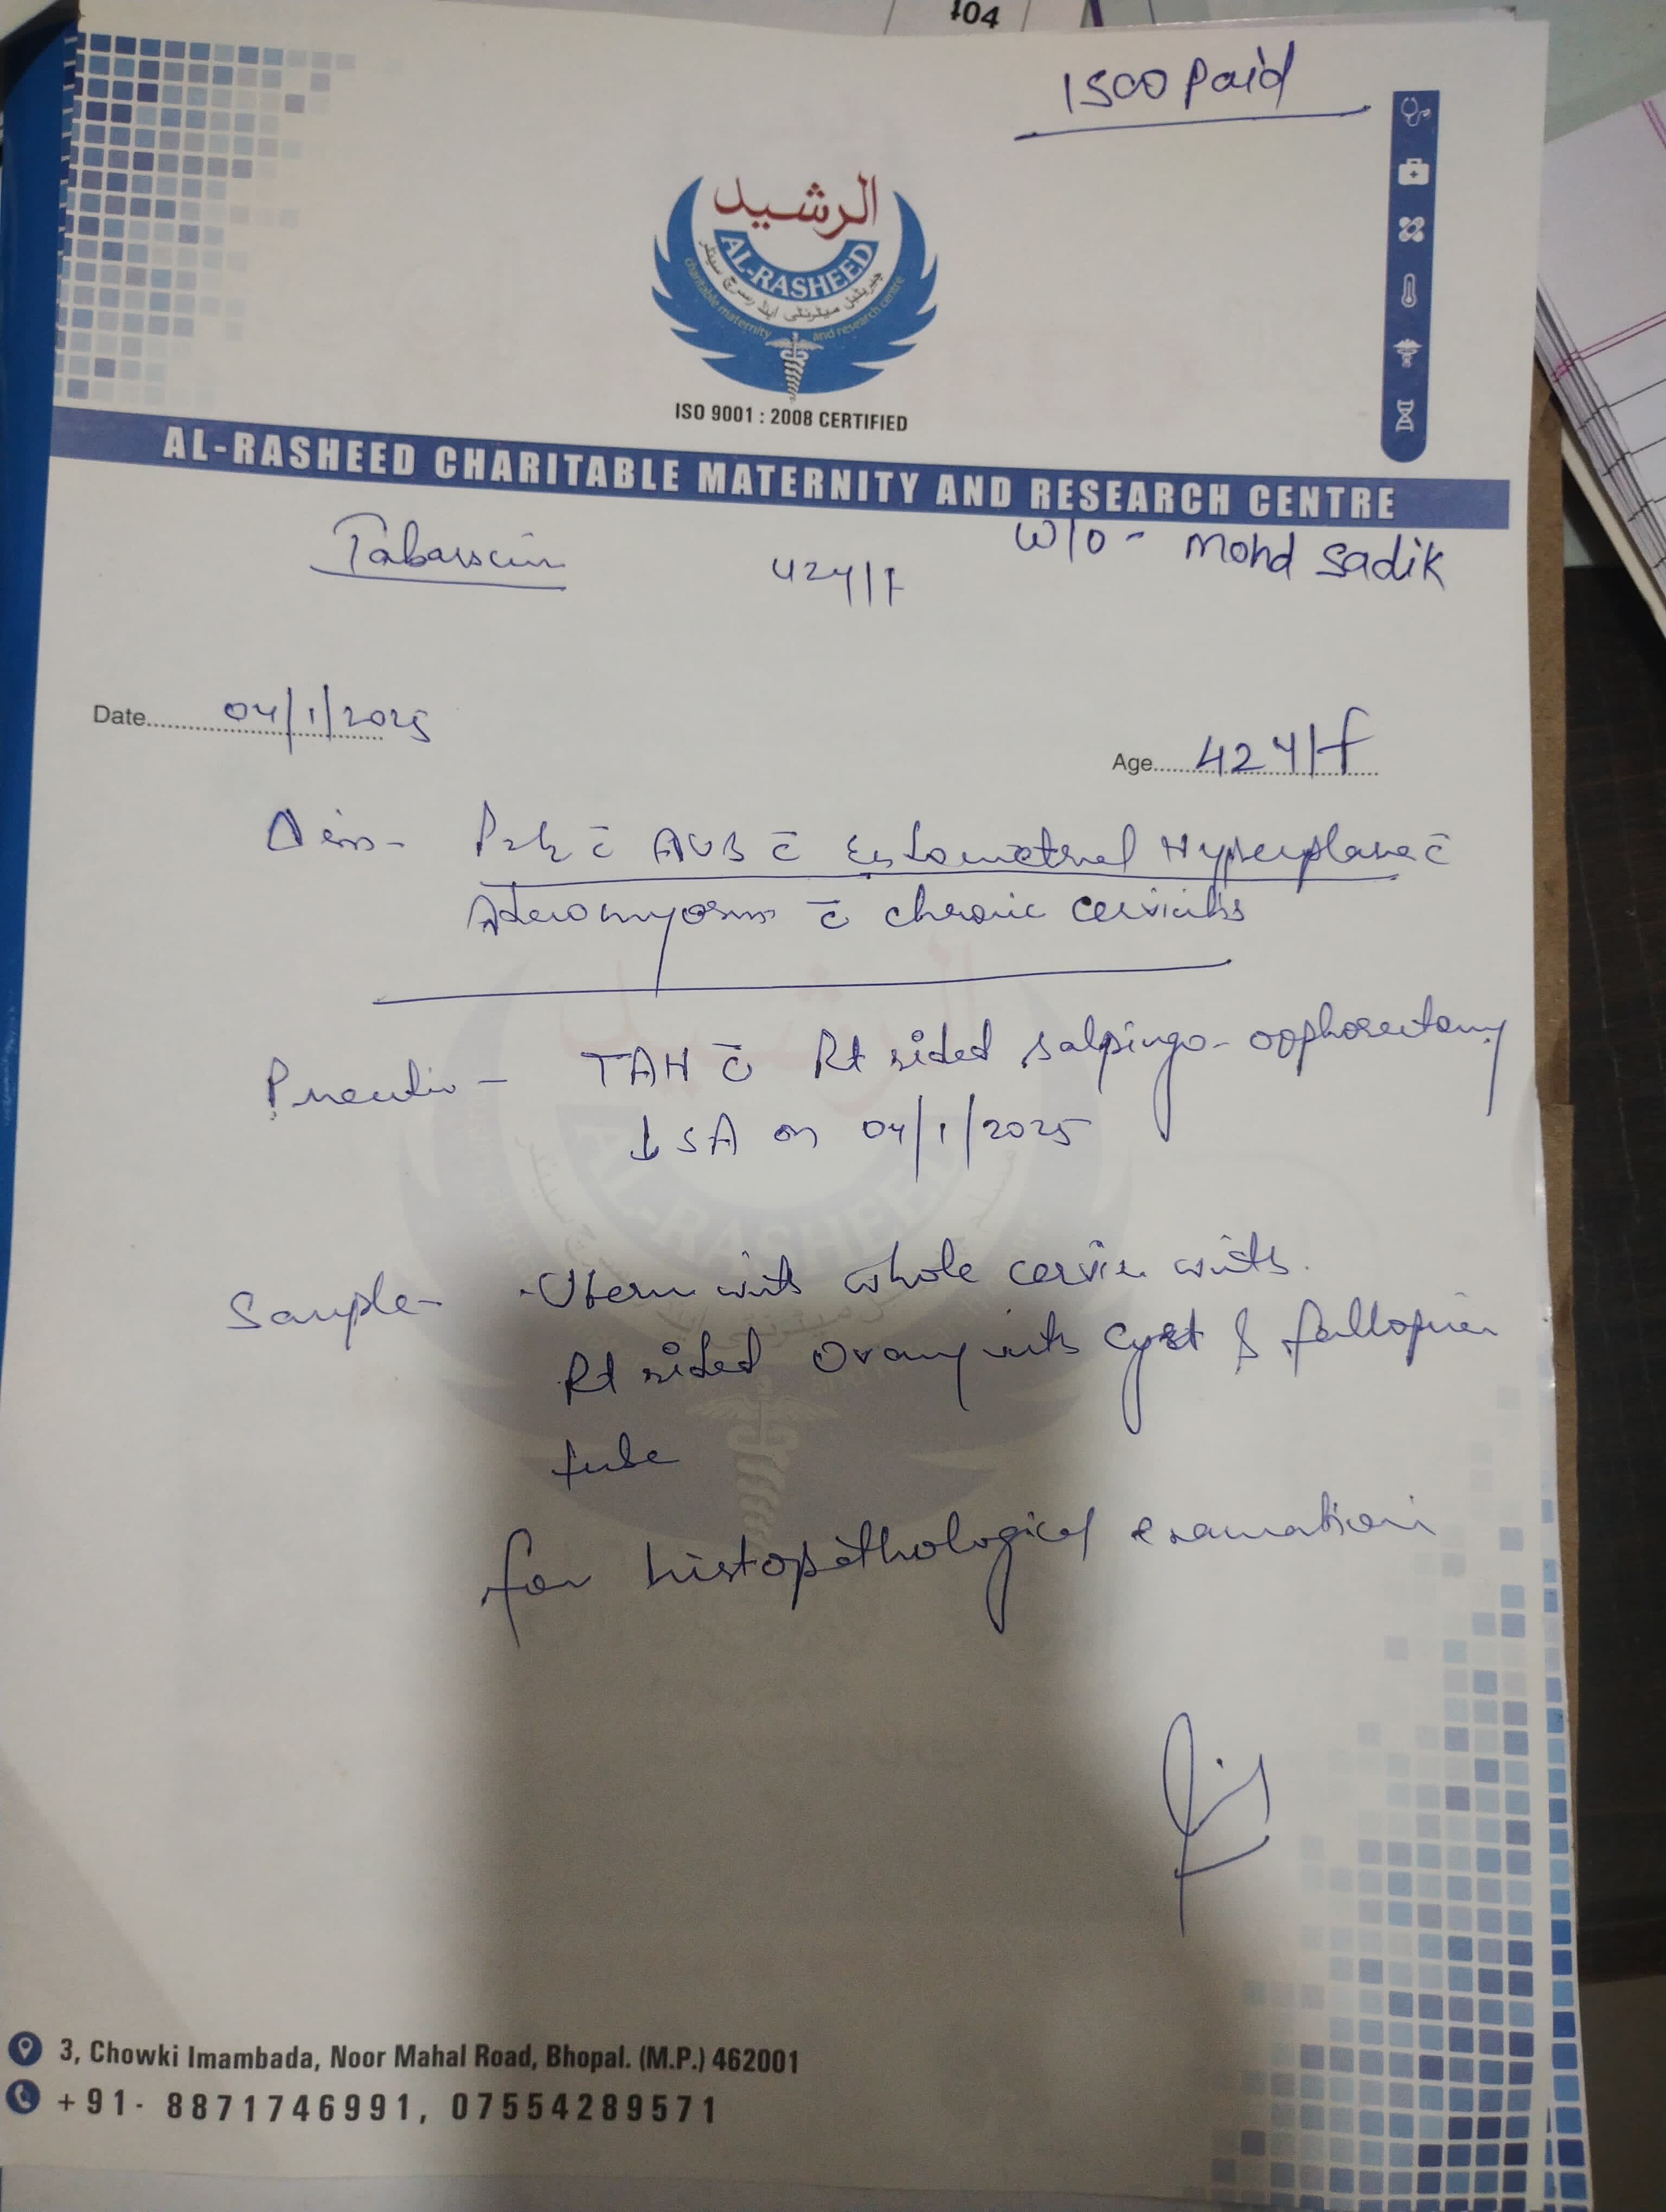 104
1500 Paid
الرشید
AL-RASHEED
چیریٹیبل میٹرنٹی اینڈ رسرچ سینٹر
charitable maternity and research centre
ISO 9001 : 2008 CERTIFIED
AL-RASHEED CHARITABLE MATERNITY AND RESEARCH CENTRE
Tabassum 42y/F W/O - Mohd Sadik
Date 04/1/2025
Age 42y/f
c̄ AUB c̄ Endometrial Hyperplasia c̄
Adenomyosis c̄ chronic cervicitis
TAH c̄ Rt sided salpingo-oophorectomy
↓ SA on 04/1/2025
Sample - Uterus with whole cervix with
Rt sided Ovary with cyst & fallopian
tube
for histopathological examination
3, Chowki Imambada, Noor Mahal Road, Bhopal. (M.P.) 462001
+91- 8871746991, 07554289571